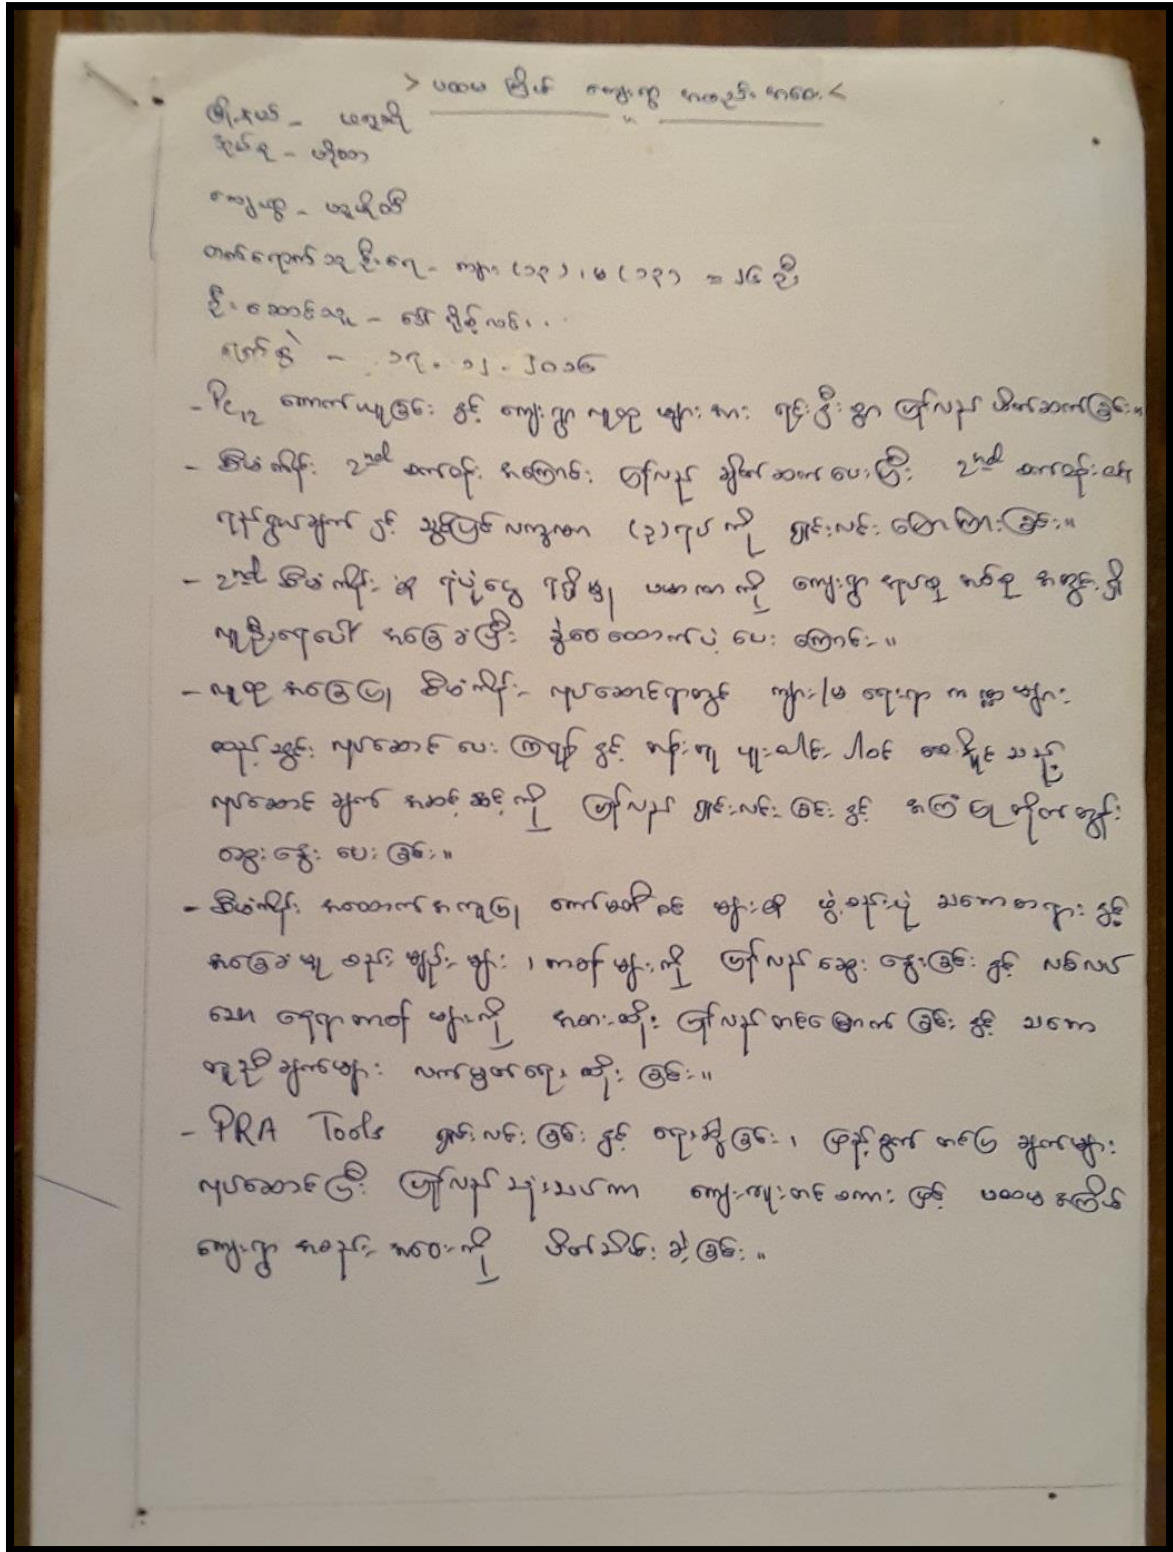 > ပထမ ကြိမ် ကျေးရွာ အစည်း အဝေး <
မြို့နယ် -
အုပ်စု -
ကျေးရွာ -
တက်ရောက်သူ ဦးရေ - ကျား (၁၃) ၊ မ (၁၃) = ၂၆ ဦး
ဦးဆောင်သူ - ဒေါ်
နေ့စွဲ - ၁၂ - ၂၀၁၆
- PC12 ကောက်ယူခြင်း နှင့် ကျေးရွာ လူထု များ အား ရင်းနှီး စွာ ပြန်လည် မိတ်ဆက်ခြင်း။
- စီမံကိန်း 2nd စက်ဝန်း အကြောင်း ပြန်လည် ချိတ်ဆက် ပေးပြီး 2nd စက်ဝန်း ၏
ရည်ရွယ်ချက် နှင့် သွင်ပြင် လက္ခဏာ (၃)ရပ် ကို ရှင်းလင်း ပြောကြားခြင်း။
- 2nd စီမံကိန်း ၏ ရံပုံငွေ ရရှိမှု ပမာဏ ကို ကျေးရွာ အုပ်စု တစ်စု အတွင်း ရှိ
လူဦးရေပေါ် အခြေခံပြီး ခွဲဝေထောက်ပံ့ ပေး ကြောင်း။
- လူထု အခြေပြု စီမံကိန်း လုပ်ဆောင်ရာတွင် ကျား/မ ရေးရာ ကဏ္ဍ များ
ထည့်သွင်း လုပ်ဆောင် ပေး ကြရန် နှင့် တန်းတူ ပူးပေါင်း ပါဝင် စေ နိုင် သည့်
လုပ်ဆောင် ချက် အဆင့်ဆင့် ကို ပြန်လည် ရှင်းလင်း ခြင်း နှင့် အကြံပြု တိုက်တွန်း
ဆွေးနွေး ပေး ခြင်း။
- စီမံကိန်း အထောက်အကူပြု ကော်မတီဝင် များ ၏ ဖွဲ့စည်းပုံ သဘောတရား နှင့်
အခြေခံ မူ စည်း မျဉ်း များ ၊ တာဝန် များ ကို ပြန်လည် ဆွေး နွေးခြင်း နှင့် လစ်လပ်
သော နေရာ တာဝန် များကို အစားထိုး ပြန်လည် တင်မြှောက် ခြင်း နှင့် သဘော
တူညီ ချက်များ လက်မှတ်ရေး ထိုး ခြင်း။
- PRA Tools ရှင်းလင်း ခြင်း နှင့် ရေးဆွဲ ခြင်း ၊ ဖြည့်စွက် တင်ပြ ချက်များ
လုပ်ဆောင်ပြီး ပြန်လည် သုံးသပ်ကာ ကျေးဇူးတင် စကား ဖြင့် ပထမ အကြိမ်
ကျေးရွာ အစည်း အဝေး ကို ပိတ်သိမ်း ခဲ့ ခြင်း ။